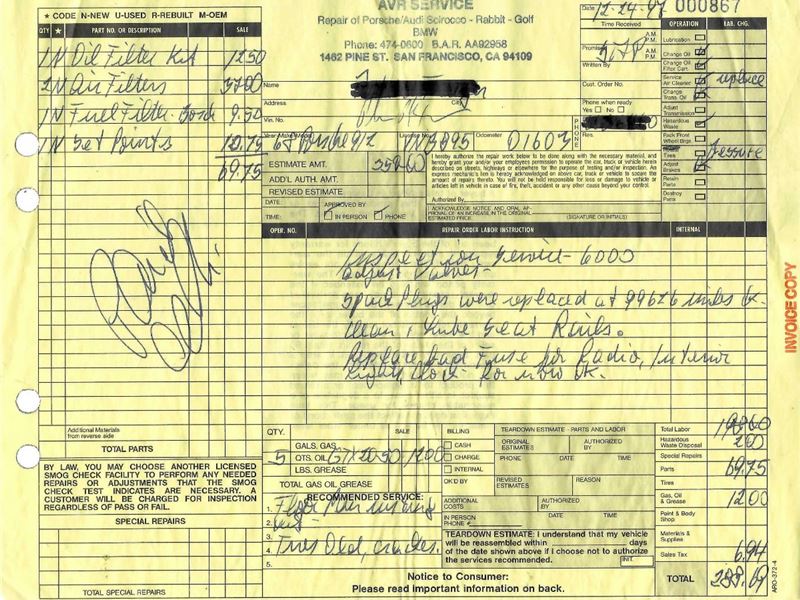 ★ CODE N-NEW U-USED R-REBUILT M-OEM
QTY ★ PART NO. OR DESCRIPTION SALE
1 N Oil Filter Kit 12.50
2 N Air Filters 37.00
1 N Fuel Filter - Bosch 9.50
1 N Set Points 10.75
69.75
Additional Materials
from reverse side
TOTAL PARTS
BY LAW, YOU MAY CHOOSE ANOTHER LICENSED
SMOG CHECK FACILITY TO PERFORM ANY NEEDED
REPAIRS OR ADJUSTMENTS THAT THE SMOG
CHECK TEST INDICATES ARE NECESSARY. A
CUSTOMER WILL BE CHARGED FOR INSPECTION
REGARDLESS OF PASS OR FAIL.
SPECIAL REPAIRS
TOTAL SPECIAL REPAIRS
AVR SERVICE
Repair of Porsche/Audi Scirocco - Rabbit - Golf
BMW
Phone: 474-0600 B.A.R. AA92958
1462 PINE ST. SAN FRANCISCO, CA 94109
Name
Address City
Vin. No.
Porsche 912 License No. Odometer
ESTIMATE AMT.
ADD'L AUTH. AMT.
REVISED ESTIMATE
DATE: APPROVED BY
TIME: IN PERSON PHONE
I hereby authorize the repair work below to be done along with the necessary material, and
hereby grant your and/or your employees permission to operate the car, truck or vehicle herein
described on streets, highways or elsewhere for the purpose of testing and/or inspection. An
express mechanic's lien is hereby acknowledged on above car, truck or vehicle to secure the
amount of repairs thereto. You will not be held responsible for loss or damage to vehicle or
articles left in vehicle in case of fire, theft, accident or any other cause beyond your control.
Authorized By
I ACKNOWLEDGE NOTICE AND ORAL AP-
PROVAL OF AN INCREASE IN THE ORIGINAL
ESTIMATED PRICE. (SIGNATURE OR INITIALS)
Date 12-24-97 000867
Time Received A.M. P.M.
Promised A.M. P.M.
Written By
Cust. Order No.
Phone when ready
Yes No
PHONE
Res.
OPERATION LAB. CHG.
Lubrication
Change Oil
Change Oil
Filter Cart.
Service
Air Cleaner replace
Change
Trans. Oil
Adjust
Transmission
Hazardous
Waste
Pack Front
Wheel Brgs.
Tires Pressure
Adjust
Brakes
Retain
Parts
Destroy
Parts
OPER. NO. REPAIR ORDER LABOR INSTRUCTION INTERNAL
Inspection Service - 6000
Adjust Valves -
Spark Plugs were replaced at 99626 miles ok.
Clean, Lube Seat Rails.
Replace bad Fuse for Radio, Interior
Lights, Clock - for now ok.
QTY. SALE
GALS. GAS
5 QTS. OIL GTX 20-50 12.00
LBS. GREASE
TOTAL GAS OIL GREASE
RECOMMENDED SERVICE:
1. Floor
2.
3.
4. Tires Old, cracks.
5.
BILLING
CASH
CHARGE
INTERNAL
OK'D BY
ADDITIONAL
COSTS
IN PERSON
PHONE #
TEARDOWN ESTIMATE - PARTS AND LABOR
ORIGINAL
ESTIMATES
AUTHORIZED
BY
PHONE DATE TIME
REVISED
ESTIMATES
REASON
AUTHORIZED
BY
DATE TIME
TEARDOWN ESTIMATE: I understand that my vehicle
will be reassembled within days
of the date shown above if I choose not to authorize
the services recommended. INIT.
Total Labor
Hazardous
Waste Disposal 2.00
Special Repairs
Parts 69.75
Tires
Gas, Oil
& Grease 12.00
Paint & Body
Shop
Materials &
Supplies
Sales Tax 6.94
TOTAL
Notice to Consumer:
Please read important information on back.
INVOICE COPY
ARO-372-4